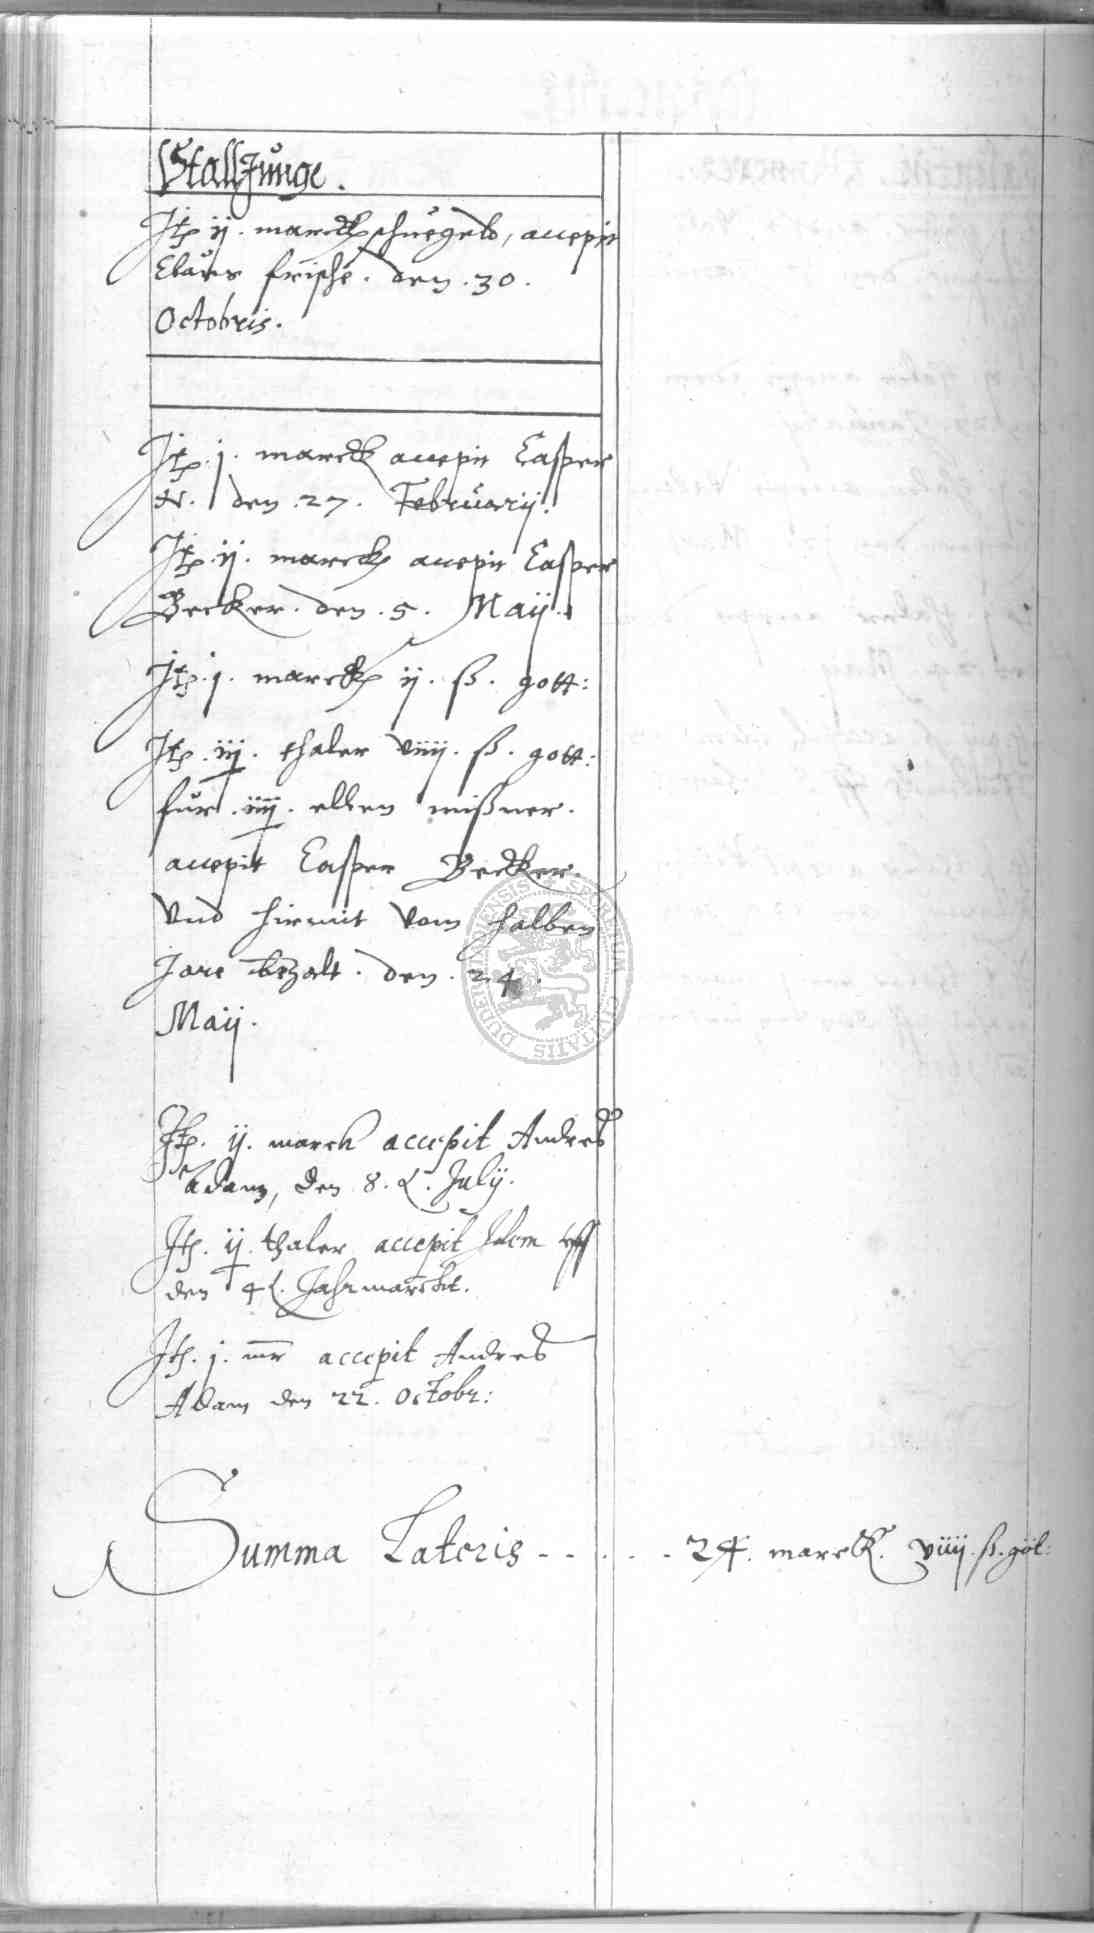 StallJunge.
Itē ij. marck schuegeld, accepit
Claus frische. den. 30.
Octobris.
Itē. j. marck accepit Casper
N. den. 27. Februarij.
Itē. ij. marck accepit Casper
Becker. den. 5. Maij.
Itē. j. marck ij. ß. gott:
Itē. iij. thaler viiij. ß. gott:
fur. iiij. ellen mißner.
accepit Casper Becker.
vnd hirmit vom halben
Jare bezalt. den. 24.
Maij.
Itē. ij. marck accepit Andres
Adam, den 8. Julij.
Itē. ij. thaler accepit Idem vff
den Jahrmarckt.
Itē. j. mr accepit Andres
Adam den 22. Octobr:
Summa Lateris - - - - - 24. marck. viiij. ß. got:
SECRETUM CIVITATIS DUDERSTADENSIS